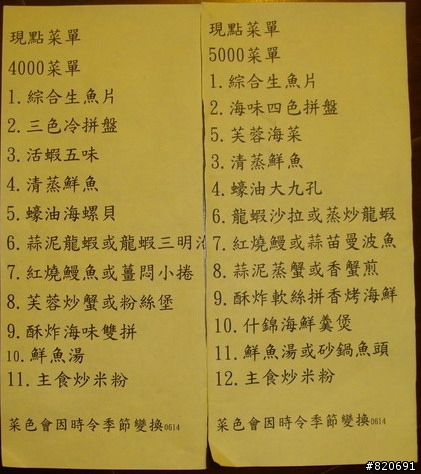 現點菜單
4000菜單
1.綜合生魚片
2.三色冷拼盤
3.活蝦五味
4.清蒸鮮魚
5.蠔油海螺貝
6.蒜泥龍蝦或龍蝦三明治
7.紅燒鰻魚或薑悶小捲
8.芙蓉炒蟹或粉絲堡
9.酥炸海味雙拼
10.鮮魚湯
11.主食炒米粉
菜色會因時令季節變換0614
現點菜單
5000菜單
1.綜合生魚片
2.海味四色拼盤
5.芙蓉海菜
3.清蒸鮮魚
4.蠔油大九孔
6.龍蝦沙拉或蒸炒龍蝦
7.紅燒鰻或蒜苗曼波魚
8.蒜泥蒸蟹或香蟹煎
9.酥炸軟絲拼香烤海鮮
10.什錦海鮮羹煲
11.鮮魚湯或砂鍋魚頭
12.主食炒米粉
菜色會因時令季節變換0614
#820691